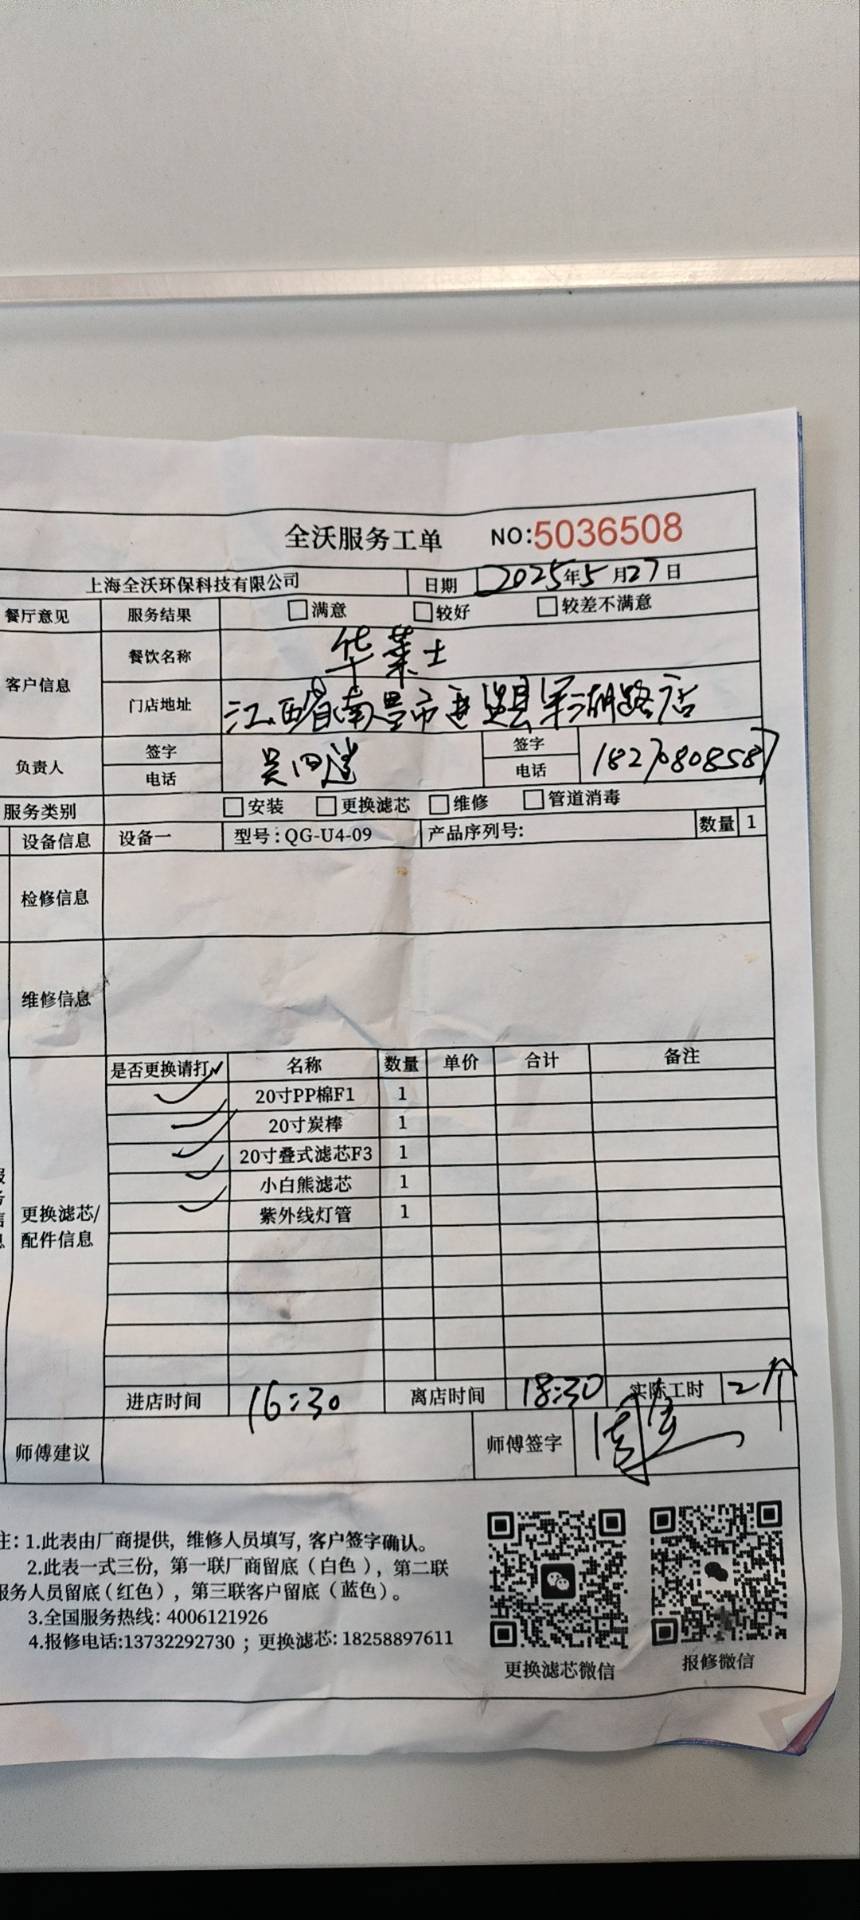 全沃服务工单 NO:5036508
上海全沃环保科技有限公司 日期 2025年5月27日
餐厅意见 服务结果 □满意 □较好 □较差不满意
客户信息 餐饮名称 华莱士
门店地址 江西省南昌市进贤县军湖路店
负责人 签字 签字
电话 吴 电话 18270808587
服务类别 □安装 □更换滤芯 □维修 □管道消毒
设备信息 设备一 型号:QG-U4-09 产品序列号: 数量 1
检修信息
维修信息
是否更换请打✓ 名称 数量 单价 合计 备注
✓ 20寸PP棉F1 1
✓ 20寸炭棒 1
✓ 20寸叠式滤芯F3 1
✓ 小白熊滤芯 1
✓ 紫外线灯管 1
更换滤芯/
配件信息
进店时间 16:30 离店时间 18:30 实际工时 2个
师傅建议 师傅签字
注: 1.此表由厂商提供, 维修人员填写, 客户签字确认。
2.此表一式三份, 第一联厂商留底 (白色), 第二联
服务人员留底 (红色), 第三联客户留底 (蓝色)。
3.全国服务热线: 4006121926
4.报修电话:13732292730 ; 更换滤芯: 18258897611
更换滤芯微信 报修微信